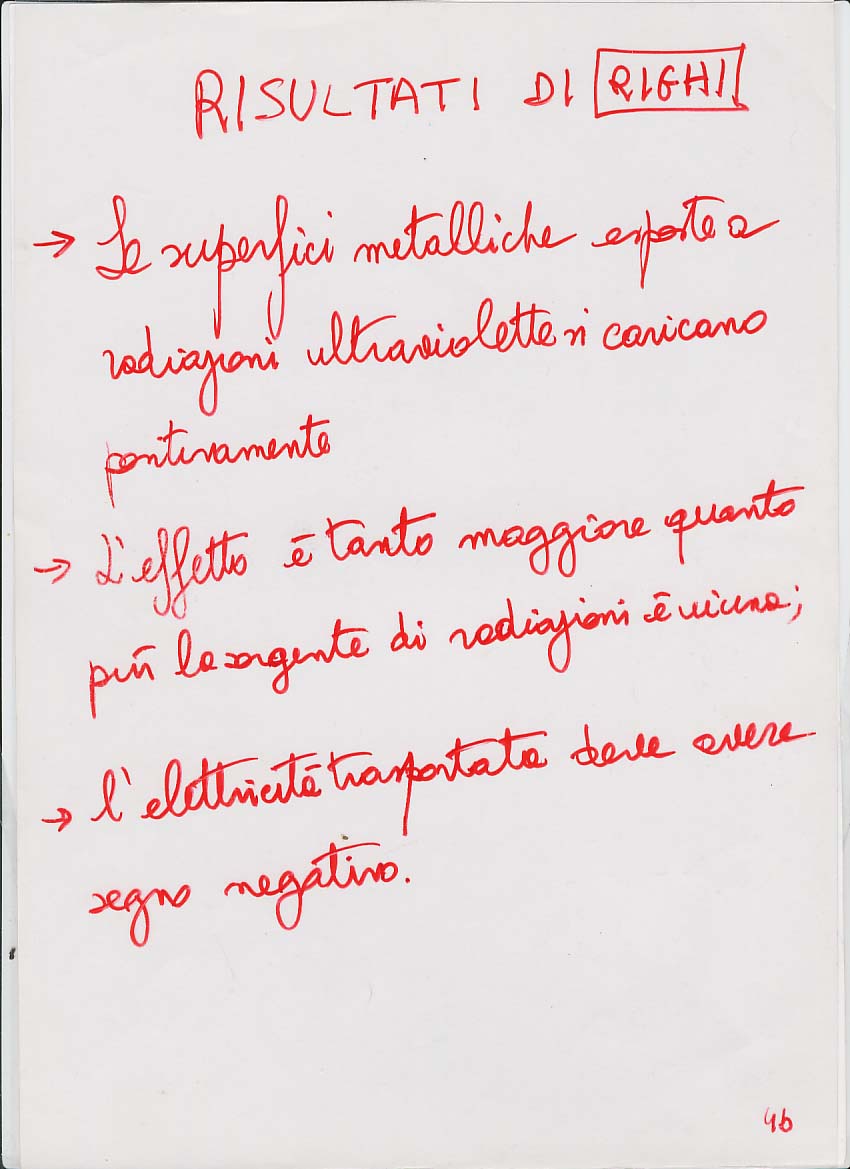 RISULTATI DI RIGHI
→ Le superfici metalliche esposte a
radiazioni ultraviolette si caricano
positivamente
→ L'effetto è tanto maggiore quanto
più la sorgente di radiazioni è vicina;
→ l'elettricità trasportata deve avere
segno negativo.
4b